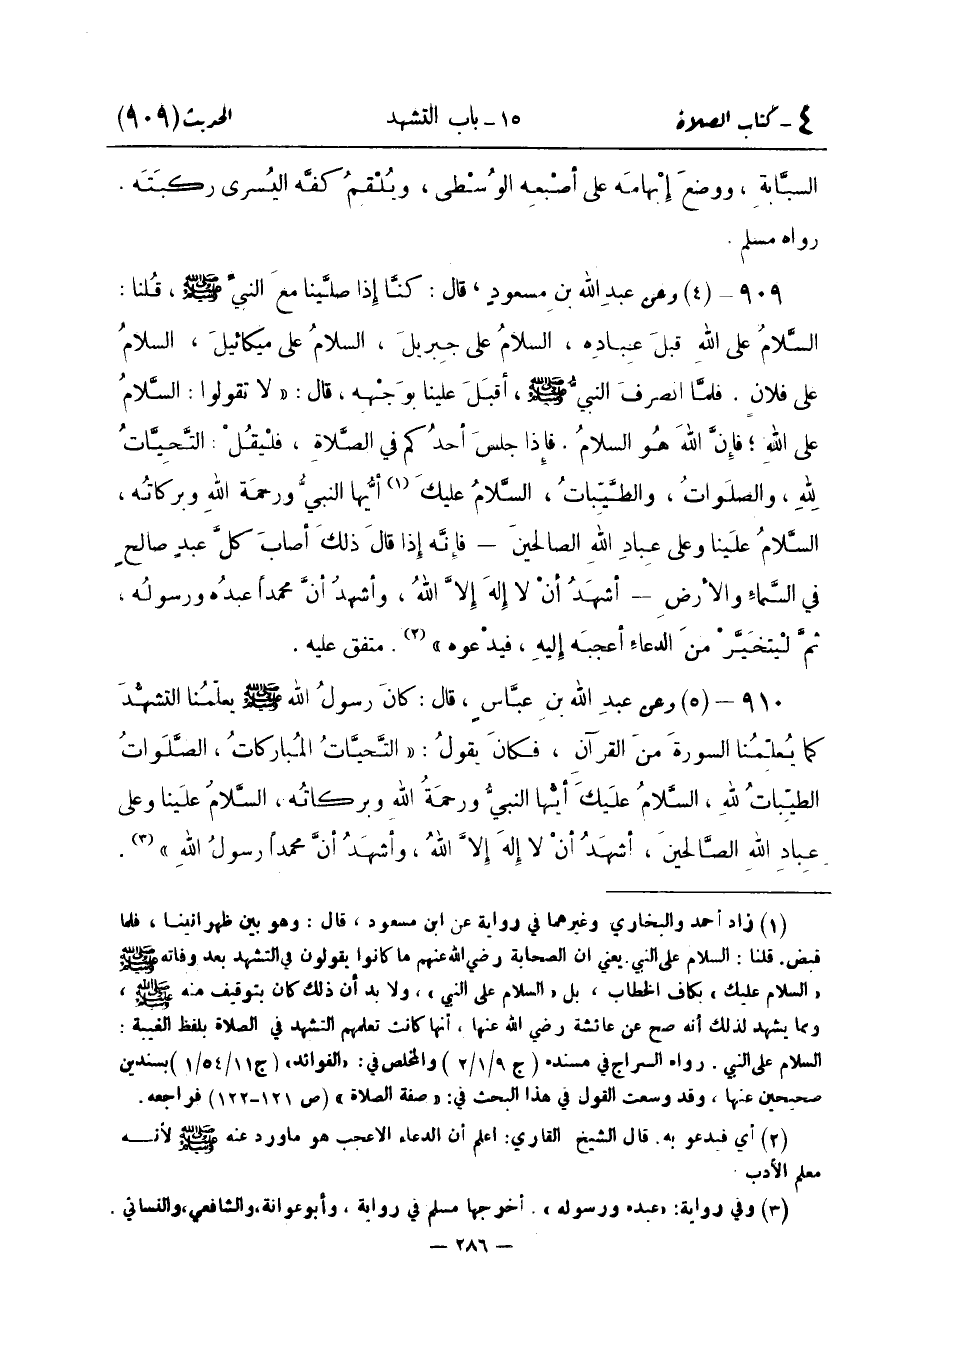 ٤ - كتاب الصلاة ١٥ - باب التشهد الحديث (٩٠٩)
السبَّابةِ ، ووضعَ إبْهامَه على أصْبعهِ الوُسْطى ، ويُلْقِمُ كفَّه اليُسرى ركبتَه .
رواه مسلم .
٩٠٩ - (٤) وعن عبدِ الله بنِ مسعودٍ ، قال : كنَّا إذا صلَّينا معَ النبيِّ ﷺ ، قُلنا :
السَّلامُ على اللهِ قبلَ عبادِه ، السلامُ على جبريلَ ، السلامُ على ميكائيلَ ، السلامُ
على فلانٍ . فلمَّا انصرفَ النبيُّ ﷺ ، أقبَلَ علينا بوَجْهِه ، قال : « لا تقولوا : السَّلامُ
على اللهِ ؛ فإنَّ اللهَ هُو السلامُ . فإذا جلسَ أحدُكم في الصَّلاةِ ، فلْيقُلْ : التَّحيَّاتُ
للهِ ، والصلَواتُ ، والطَّيِّباتُ ، السَّلامُ عليكَ (١) أيُّها النبيُّ ورحمةُ اللهِ وبركاتُه ،
السَّلامُ علَينا وعلى عبادِ اللهِ الصالحينَ — فإنَّه إذا قالَ ذلكَ أصابَ كلَّ عبدٍ صالحٍ
في السَّماءِ والأرْضِ — أشهَدُ أنْ لا إلهَ إلاَّ اللهُ ، وأشهدُ أنَّ محمداً عبدُه ورسولُه ،
ثمَّ لْيَتخيَّرْ منَ الدعاءِ أعجبَه إليهِ ، فيدْعوه » (٢) . متفق عليه .
٩١٠ - (٥) وعن عبدِ اللهِ بنِ عبَّاسٍ ، قال : كانَ رسولُ الله ﷺ يعلِّمُنا التشهُّدَ
كما يُعلِّمُنا السورةَ منَ القرآنِ ، فكانَ يقولُ : « التَّحيَّاتُ المُباركاتُ ، الصَّلَواتُ
الطيِّباتُ للهِ ، السَّلامُ عليكَ أيُّها النبيُّ ورحمةُ اللهِ وبركاتُه ، السَّلامُ علَينا وعلى
عبادِ اللهِ الصَّالحينَ ، أشهَدُ أنْ لا إلهَ إلاَّ اللهُ ، وأشهَدُ أنَّ محمداً رسولُ اللهِ » (٣) .
(١) زاد أحمد والبخاري وغيرهما في رواية عن ابن مسعود ، قال : وهو بين ظهرانينا ، فلما
قبض. قلنا : السلام على النبي. يعني ان الصحابة رضي الله عنهم ما كانوا يقولون في التشهد بعد وفاته ﷺ
« السلام عليك » بكاف الخطاب ، بل « السلام على النبي » ، ولا بد أن ذلك كان بتوقيف منه ﷺ ،
ومما يشهد لذلك أنه صح عن عائشة رضي الله عنها ، أنها كانت تعلمهم التشهد في الصلاة بلفظ الغيبة :
السلام على النبي . رواه السراج في مسنده ( ج ٢/١/٩ ) والمخلص في : «الفوائد» ( ج١١/٥٤/١ ) بسندين
صحيحين عنها ، وقد وسعت القول في هذا البحث في : « صفة الصلاة » (ص ١٢١-١٢٢) فراجعه .
(٢) أي فيدعو به. قال الشيخ القاري: اعلم أن الدعاء الاعجب هو ماورد عنه ﷺ لأنه
معلم الأدب .
(٣) وفي رواية: «عبده ورسوله» . أخرجها مسلم في رواية ، وأبوعوانة،والشافعي،والنسائي .
— ٢٨٦ —